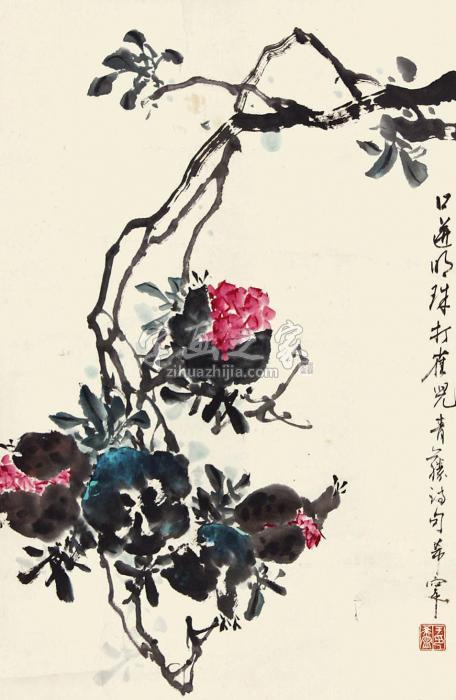 口迸明珠打雀兒青藤诗句希寧
字画之家
zihuazhijia.com